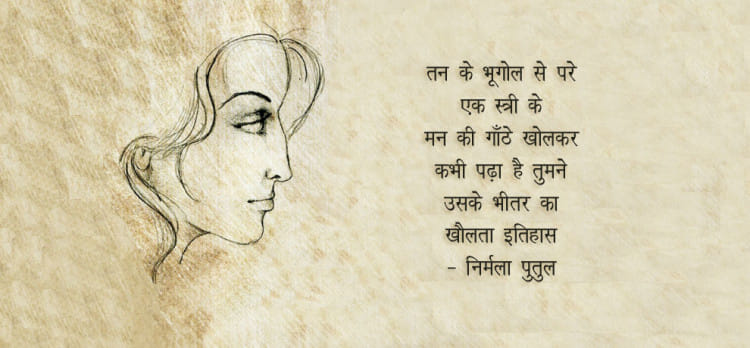 तन के भूगोल से परे
एक स्त्री के
मन की गाँठे खोलकर
कभी पढ़ा है तुमने
उसके भीतर का
खौलता इतिहास
- निर्मला पुतुल